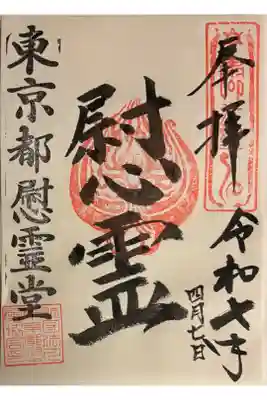 奉拝
令和七年
四月七日
慰霊
東京都慰霊堂